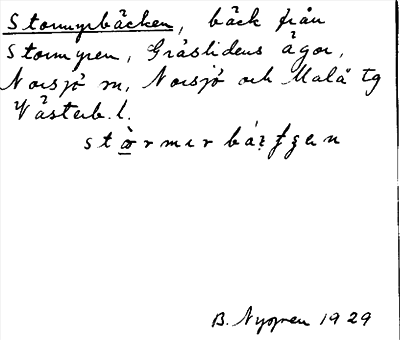 Stormyrbäcken, bäck från
Stormyren, Gråslidens ägor,
Norsjö sn, Norsjö och Malå tg
Västerb. l.
stòrmır bá
B. Nygren 1929